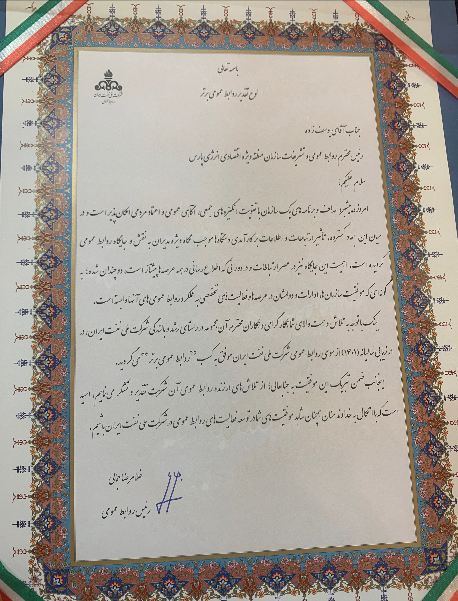 باسمه تعالی
لوح تقدیر روابط عمومی برتر
جناب آقای یوسف زاده
رئیس محترم روابط عمومی و تشریفات سازمان منطقه ویژه اقتصادی انرژی پارس
سلام علیکم؛
امروزه پیشبرد اهداف و برنامه‌های یک سازمان با تقویت انگیزه‌های جمعی، آگاهی عمومی و اعتماد مردمی امکان پذیر است و در
میان این ابعاد گسترده، تأثیر ارتباطات و اطلاعات بر کارآمدی دستگاه‌ها موجب نگاه ویژه مدیران به نقش و جایگاه روابط عمومی
گردیده است. اهمیت این جایگاه نیز در عصر ارتباطات و در دورانی که اطلاع رسانی در همه عرصه‌ها پیشتاز است، دوچندان شده؛ به
گونه‌ای که موفقیت سازمان‌ها، ادارات و دولتمردان در عرصه‌ها و فعالیت‌های تخصصی به عملکرد روابط عمومی‌های آنها وابسته است.
اینک با توجه به تلاش و همت والای شما و همکاران محترم آن مجموعه در راستای رشد و بالندگی شرکت ملی نفت ایران، در
ارزیابی سالیانه از سوی روابط عمومی شرکت ملی نفت ایران موفق به کسب "روابط عمومی برتر" می گردید.
اینجانب ضمن تبریک این موفقیت به جنابعالی؛ از تلاش‌های ارزنده روابط عمومی آن شرکت تقدیر و تشکر می نمایم، امید
است با اتکالی به خداوند منان همچنان شاهد موفقیت‌های شما در توسعه فعالیت‌های روابط عمومی در شرکت ملی نفت ایران باشیم.
غلامرضا جمالی
رئیس روابط عمومی